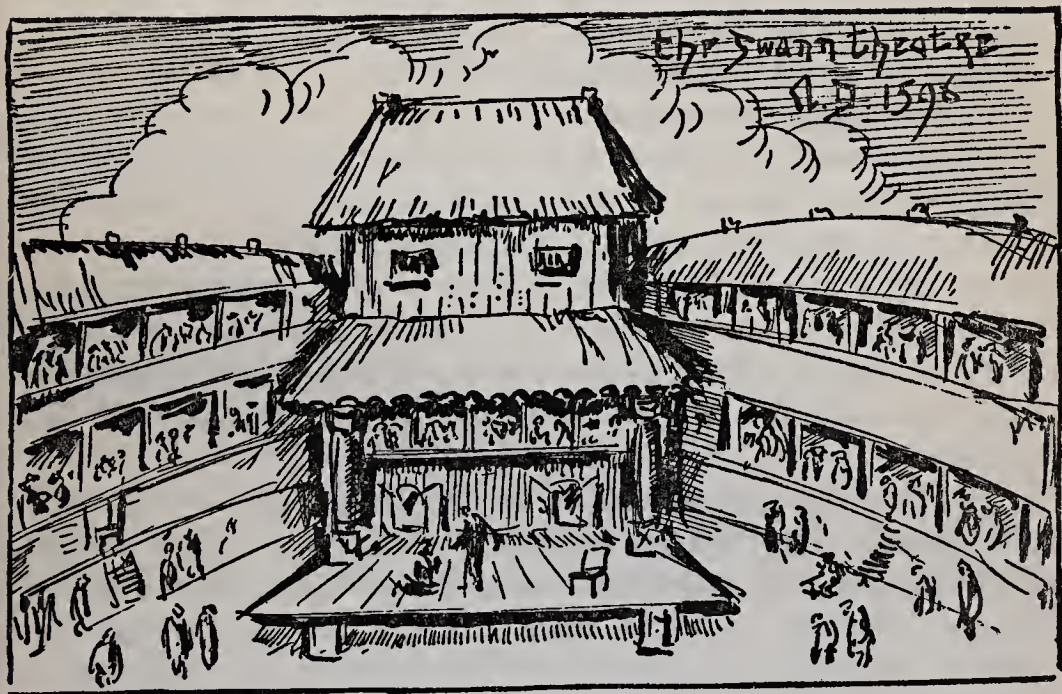 the Swann theatre
A D 1596